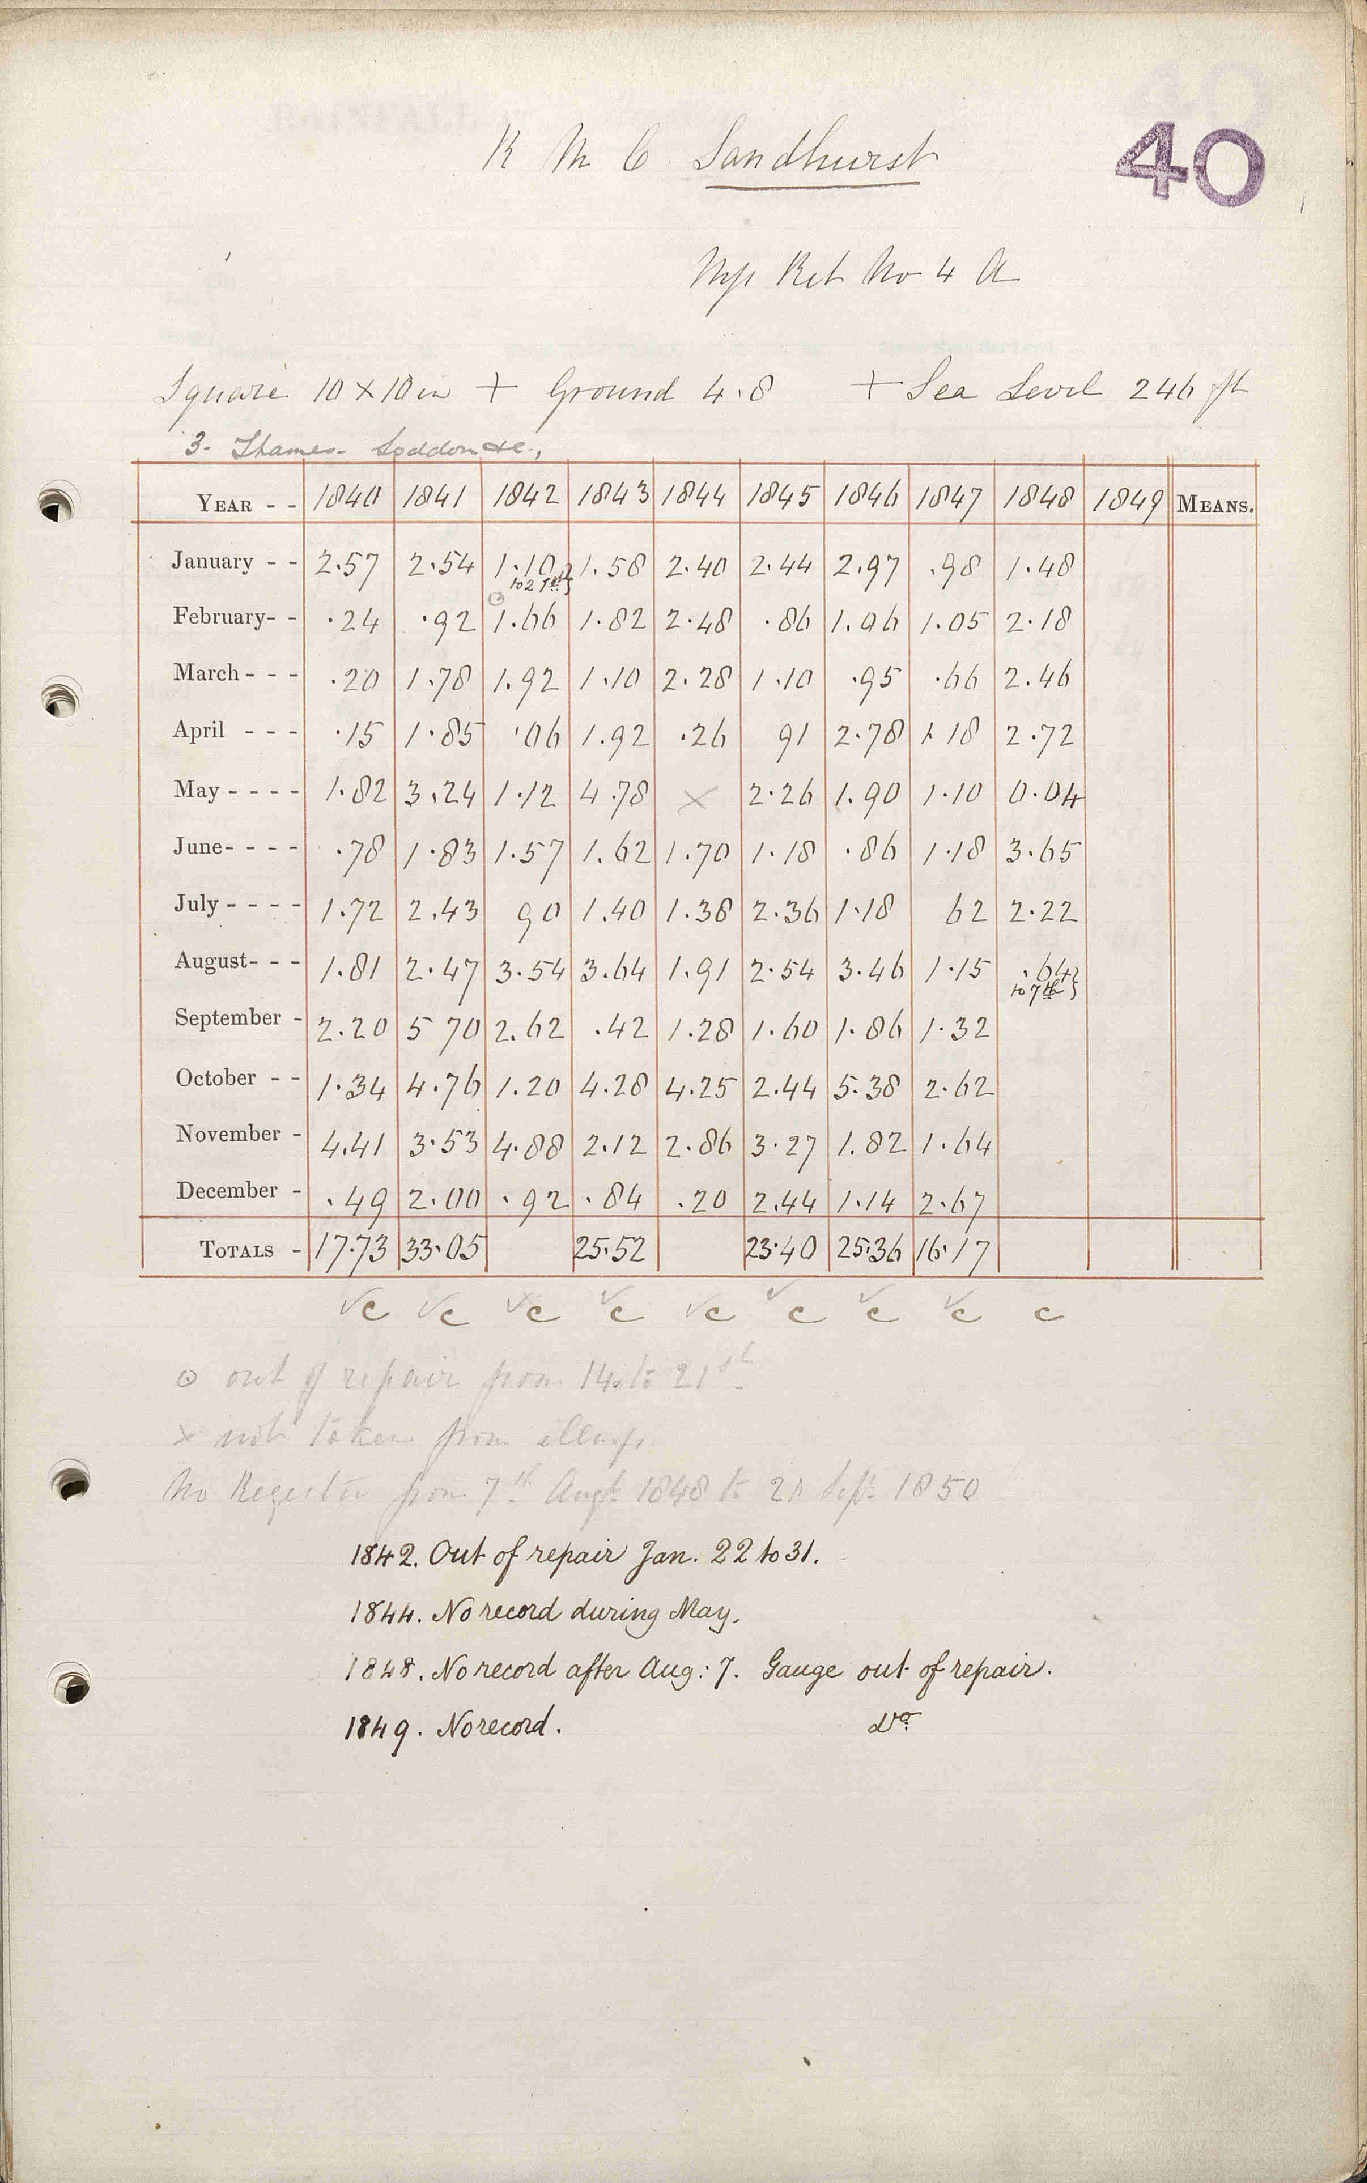 40
R M C Sandhurst
Mys Ret No 4 A
Square 10 × 10 in + Ground 4.8 + Sea Level 246 ft
3. Thames. Loddon &c.,
YEAR - - 1840 1841 1842 1843 1844 1845 1846 1847 1848 1849 MEANS.
January - - 2.57 2.54 1.10 1.58 2.40 2.44 2.97 .98 1.48
to 21st}
February- - .24 .92 1.66 1.82 2.48 .86 1.96 1.05 2.18
March - - - .20 1.78 1.92 1.10 2.28 1.10 .95 .66 2.46
April - - - .15 1.85 .06 1.92 .26 91 2.78 1.18 2.72
May - - - - 1.82 3.24 1.12 4.78 × 2.26 1.90 1.10 0.04
June- - - - .78 1.83 1.57 1.62 1.70 1.18 .86 1.18 3.65
July - - - - 1.72 2.43 90 1.40 1.38 2.36 1.18 62 2.22
August- - - 1.81 2.47 3.54 3.64 1.91 2.54 3.46 1.15 .64}
to 7th}
September - 2.20 5 70 2.62 .42 1.28 1.60 1.86 1.32
October - - 1.34 4.76 1.20 4.28 4.25 2.44 5.38 2.62
November - 4.41 3.53 4.88 2.12 2.86 3.27 1.82 1.64
December - .49 2.00 .92 .84 .20 2.44 1.14 2.67
TOTALS - 17.73 33.05 25.52 23.40 25.36 16.17
✓c ✓c ✓c ✓c ✓c ✓c ✓c ✓c c
⊙ out of repair from 14 to 21st
× not taken from illness
No Register from 7th Augt 1848 to 21 Sept 1850
1842. Out of repair Jan. 22 to 31.
1844. No record during May.
1848. No record after Aug: 7. Gauge out of repair.
1849. No record. Do.